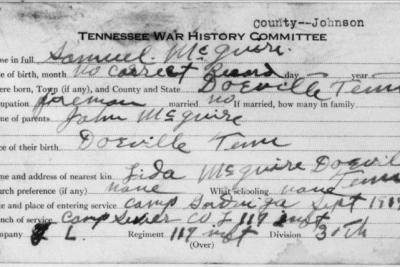 County--Johnson
TENNESSEE WAR HISTORY COMMITTEE
me in full Samuel McGuire.
te of birth, month no correct Record day year
ere born, Town (if any), and County and State Doeville Tenn
cupation foreman married no. If married, how many in family
me of parents John McGuire
ce of their birth Doeville Tenn
me and address of nearest kin. Lida McGuire Doevil
Tenn
urch preference (if any) none What schooling. none
te and place of entering service Camp Sept
nch of service Camp Sevier Co. L 119 inft
mpany L. Regiment 119 inft Division 30th
(Over)